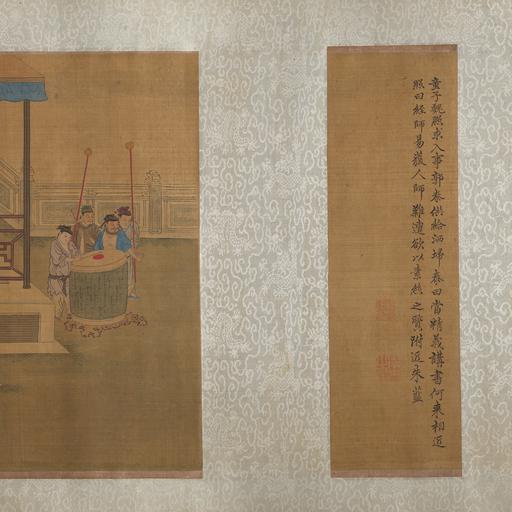 童子魏照求入事郭泰供給洒埽泰曰當精義講書何來相近
照曰經師易獲人師難遭欲以素絲之質附近朱藍